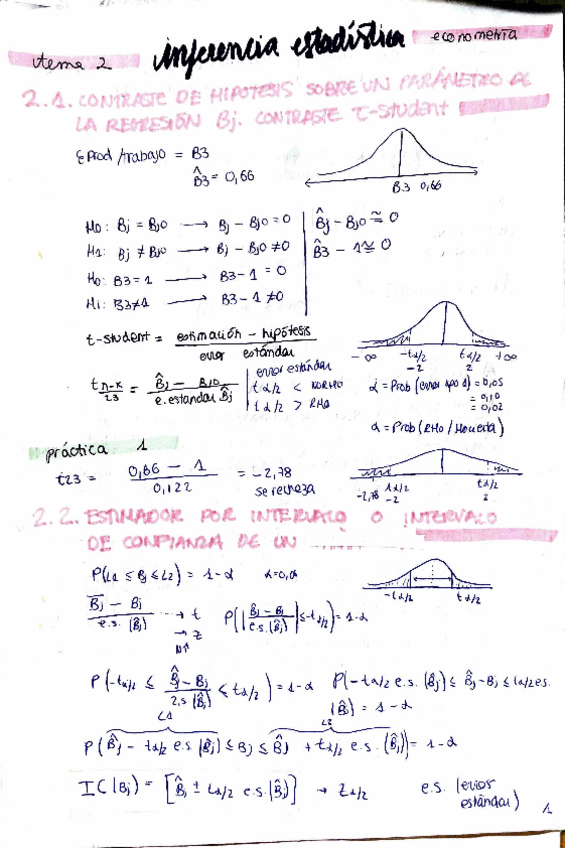 tema 2 inferencia estadística econometría
2.1. CONTRASTE DE HIPÓTESIS SOBRE UN PARÁMETRO DE
LA REGRESIÓN Bj. CONTRASTE T-student
εprod/trabajo = B3
B̂3 = 0,66
B3 0,66
H0: Bj = Bj0 → Bj - Bj0 = 0
H1: Bj ≠ Bj0 → Bj - Bj0 ≠ 0
H0: B3 = 1 → B3 - 1 = 0
H1: B3 ≠ 1 → B3 - 1 ≠ 0
B̂j - Bj0 ≅ 0
B̂3 - 1 ≅ 0
t-student = estimación - hipótesis / error estándar
-∞ -tα/2 tα/2 +∞
-2 2
t n-k = B̂j - Bj0 / e.estandar B̂j
23
error estándar
tα/2 < NO RH0
tα/2 > RH0
α = Prob (error tipo 1) = 0,05
= 0,10
= 0,02
α = Prob (RH0 / H0 cierta)
práctica 1
t23 = 0,66 - 1 / 0,122 = -2,78
se rechaza
-2,78 tα/2 tα/2
-2 2
2.2. ESTIMADOR POR INTERVALO O INTERVALO
DE CONFIANZA DE UN
P(L1 ≤ Bj ≤ L2) = 1-α
-tα/2 tα/2
B̂j - Bj / e.s. (B̂j) → t
→ z
n↑
P(|B̂j - Bj / e.s. (B̂j)| ≤ -tα/2) = 1-α
P(-tα/2 ≤ B̂j - Bj / e.s. (B̂j) ≤ tα/2) = 1-α
P(-tα/2 e.s. (B̂j) ≤ B̂j - Bj ≤ tα/2 e.s.
(B̂j) = 1-α
L1 L2
P(B̂j - tα/2 e.s. (B̂j) ≤ Bj ≤ B̂j + tα/2 e.s. (B̂j)) = 1-α
IC(Bj) = [B̂j ± tα/2 e.s. (B̂j)] → Zα/2
e.s. (error
estándar)
1